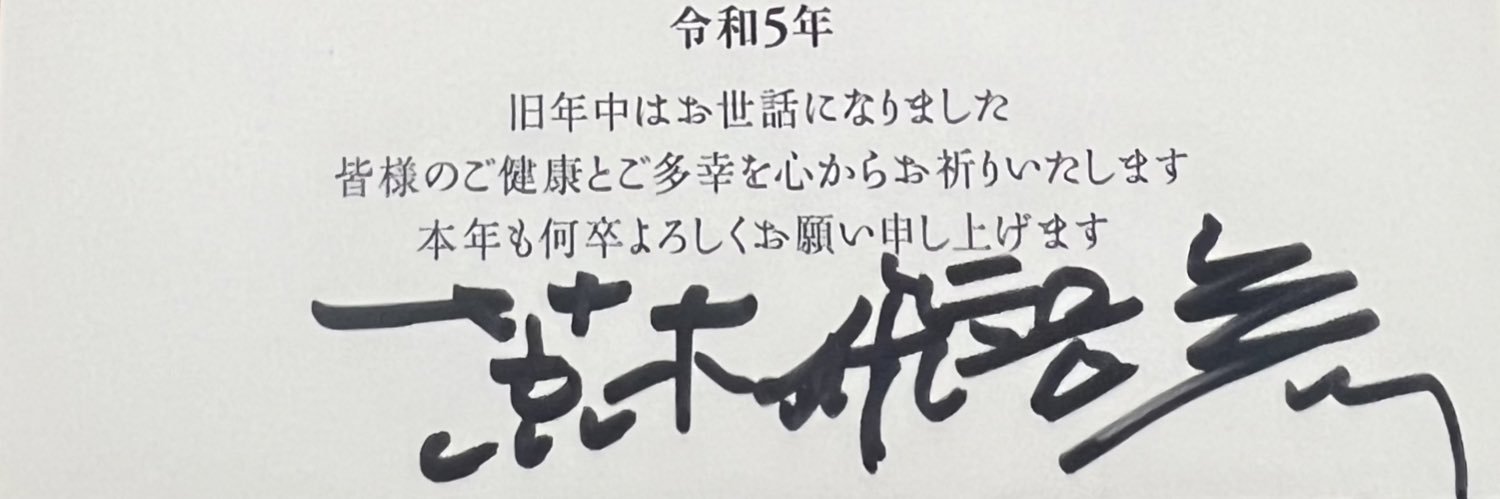 令和5年
旧年中はお世話になりました
皆様のご健康とご多幸を心からお祈りいたします
本年も何卒よろしくお願い申し上げます
荒木